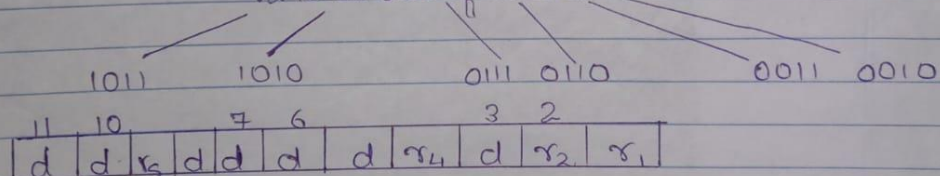 1011 1010 0111 0110 0011 0010
11 10 7 6 3 2
d d r5 d d d d r4 d r2 r1